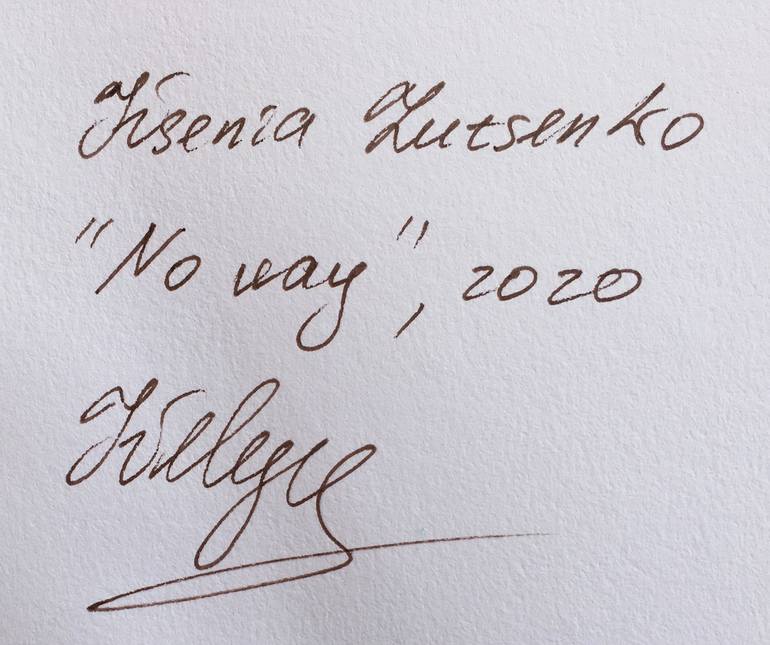 Ksenia Lutsenko
"No way", 2020